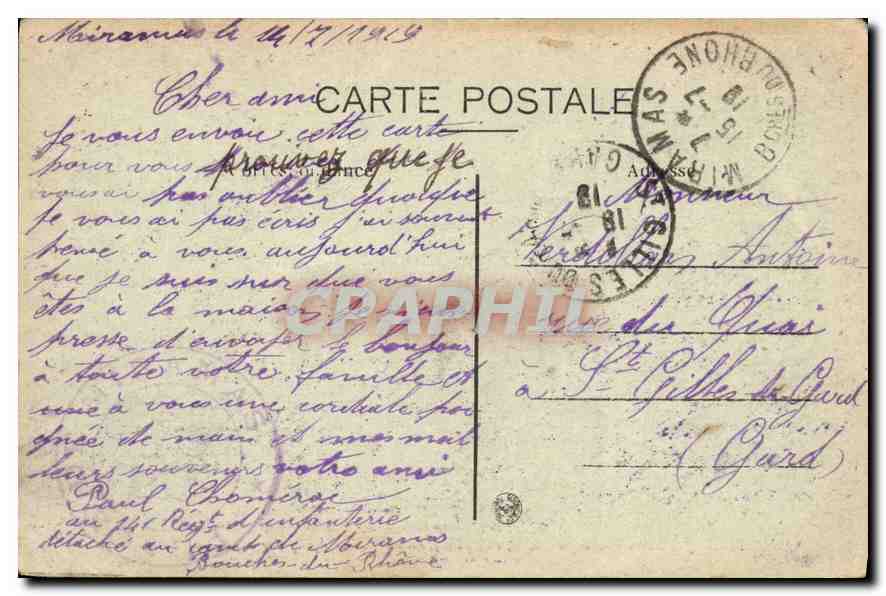 Miramas le 14/7/1919
Cher ami
CARTE POSTALE
Je vous envoie cette carte
pour vous prouvez que je
Correspondance
vous ai pas oublier quoique
je vous ai pas écris j'ai souvent
pensé à vous aujourd'hui
que je suis sur que vous
êtes à la maison je m'em
presse d'envoyer le bonjour
à toute votre famille et
à vous une cordiale poi
gnée de main et mes meil
leurs souvenirs votre ami
Paul Chomérac
au 141 Régt d'infanterie
détaché au camp de Miramas
Bouches-du-Rhône
Adresse
Monsieur
Antoine
du Quai
à St Gilles du Gard
(Gard)
MIRAMAS
BCHES DU RHONE
15 -7
19
ST GILLES DU GARD
GARD
19
CPAPHIL